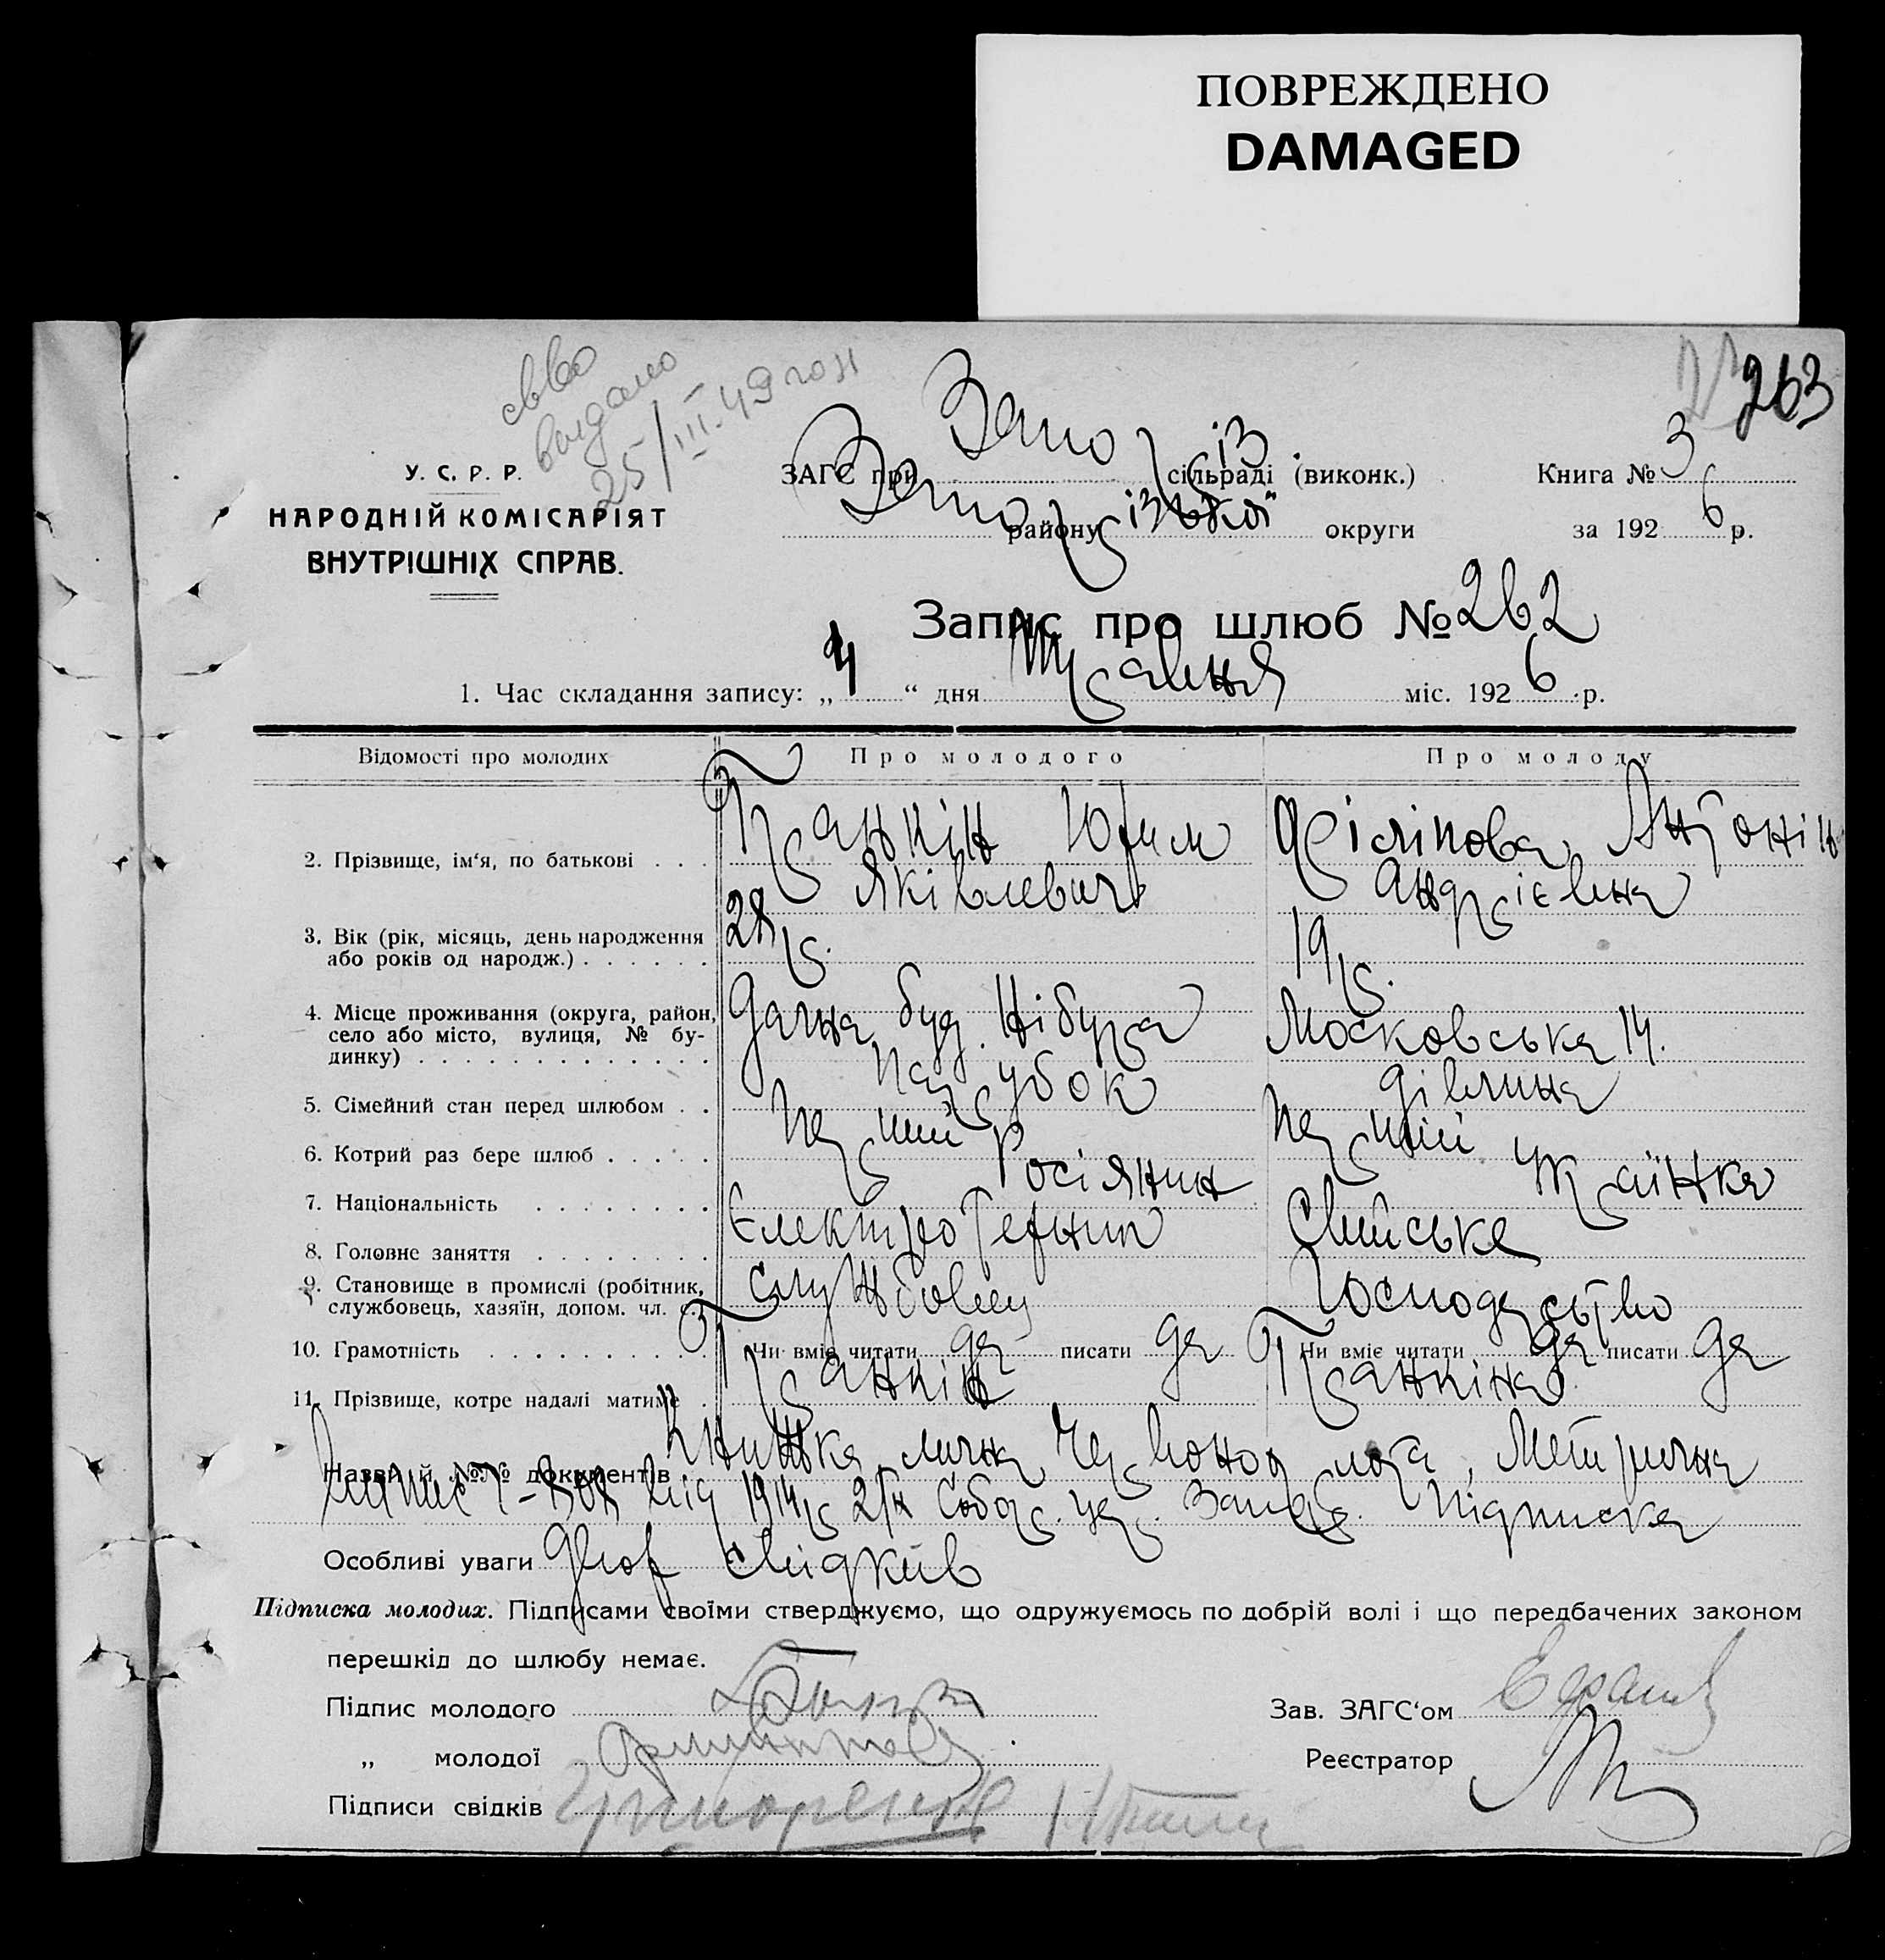 ПОВРЕЖДЕНО
DAMAGED
263
св-во
выдано
25/III.49 года
У. С. Р. Р.
НАРОДНІЙ КОМІСАРІЯТ
ВНУТРІШНІХ СПРАВ.
ЗАГС при Запоріз. сільраді (виконк.)
Запорізької району округи
Книга № 3
за 1926 р.
Запис про шлюб № 262
1. Час складання запису: „4“ дня Травня міс. 1926 р.
Відомості про молодих Про молодого Про молоду
2. Прізвище, ім'я, по батькові . . . Гранкін Юхим Яківлевич Філіпова Антонін Андрієвна
3. Вік (рік, місяць, день народження
або років од народж.) . . . . . . 28 р. 19 р.
4. Місце проживання (округа, район,
село або місто, вулиця, № бу-
динку) . . . . . . . . . . . . . Дачна буд. Нібура Московська 14.
5. Сімейний стан перед шлюбом . . парубок дівчина
6. Котрий раз бере шлюб . . . . . перший перший
7. Національність . . . . . . . . Росіянин Українка
8. Головне заняття . . . . . . . . Електротехник Свийське
9. Становище в промислі (робітник,
службовець, хазяїн, допом. чл. с.) службовець господарство
10. Грамотність . . . . . . . . . . Чи вміє читати да писати да Чи вміє читати да писати да
11. Прізвище, котре надалі матиме . Гранкін Гранкіна
Назви й №№ документів Книжка лична Червонофлота, Метрична
від 1914 р. Собор. цер. Запор. Підписка
Особливі уваги двох свідків
Підписка молодих. Підписами своїми стверджуємо, що одружуємось по добрій волі і що передбачених законом
перешкід до шлюбу немає.
Підпис молодого
Зав. ЗАГС'ом
„ молодої
Реєстратор
Підписи свідків Григоренко